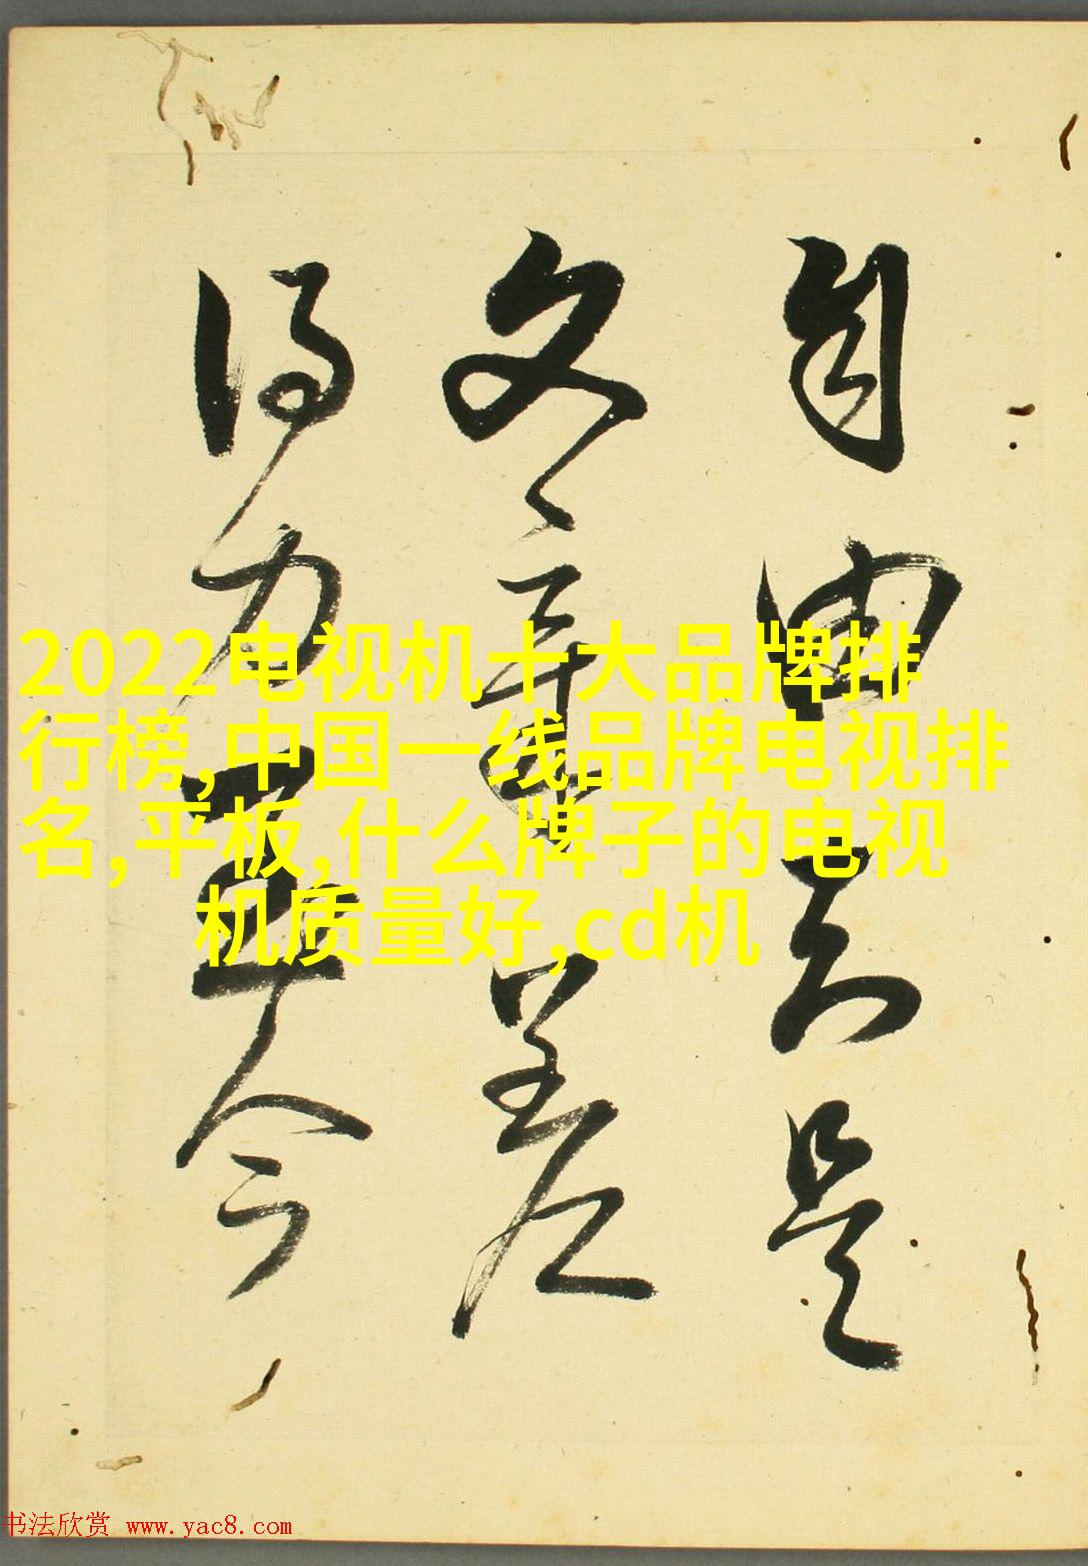 2022电视机十大品牌排
行榜,中国一线品牌电视排
名,平板,什么牌子的电视
机质量好,cd机
自由是
文章差
得力今
书法欣赏 www.yac8.com